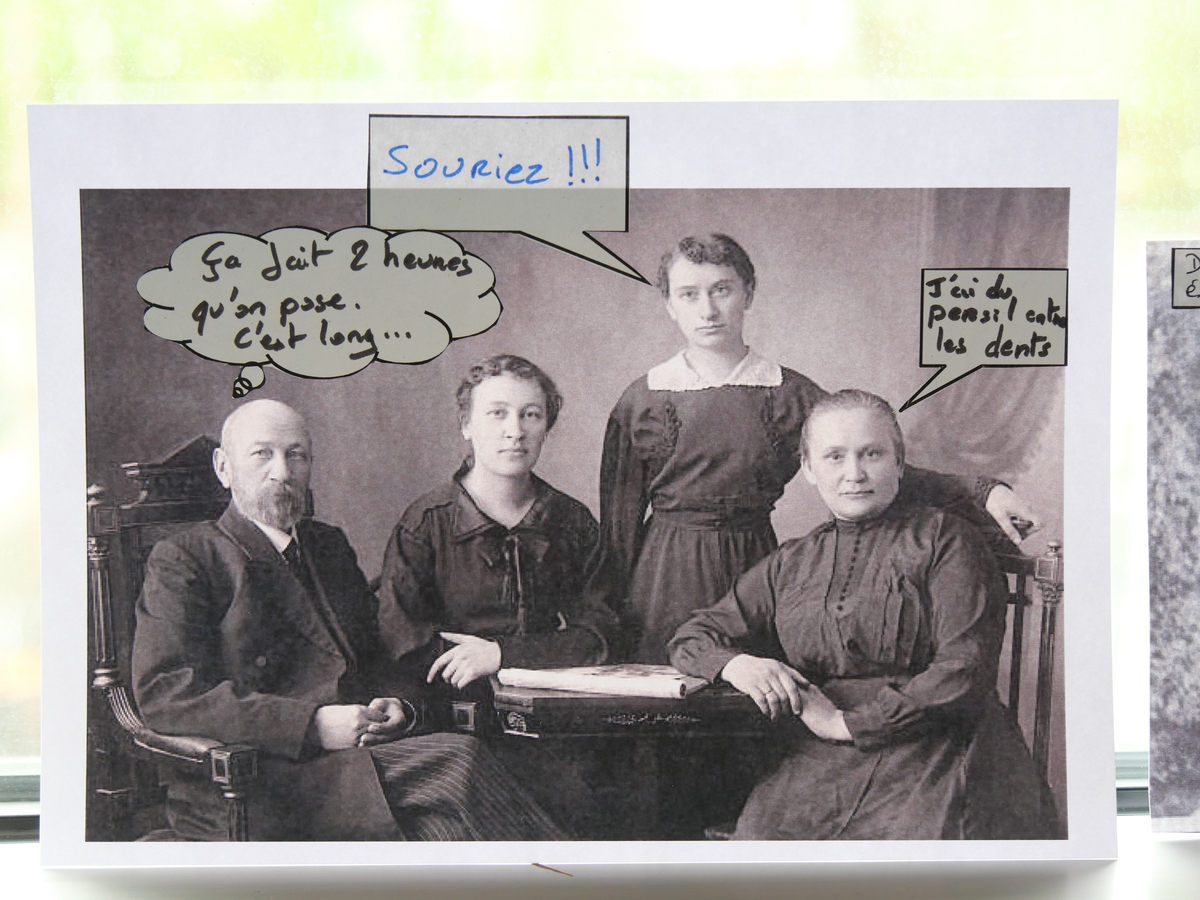 Souriez !!!
Ça fait 2 heures
qu'on pose.
C'est long...
J'ai du
persil entre
les dents